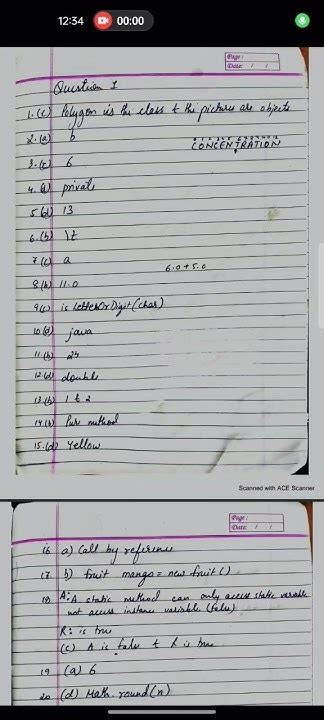 12:34 00:00
Page:
Date: / /
Question 1
1. (c) Polygon is the class & the pictures are objects
2. (a) b
CONCENTRATION
3. (c) 6
4. private
5 (d) 13
6. (b) \t
7 (c) a
6.0+5.0
8 (b) 11.0
9 (c) isLetterOrDigit(char)
10 (d) java
11. (b) 24
12. (d) double
13. (b) 1 & 2
14 (b) Pure method
15. (d) Yellow
Scanned with ACE Scanner
Page:
Date: / /
16 a) Call by reference
17 b) fruit mango = new fruit()
18 A: A static method can only access static variable
not access instance variable. (false)
R: is true
(c) A is false & R is true
19 (a) 6
20 (d) Math.round(n)